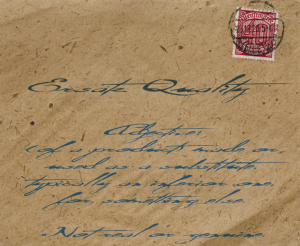 Ersatz Quality
Adjective
(of a product) made or
used as a substitute,
typically an inferior one,
for something else.
Not real or genuine